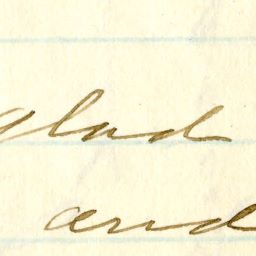 glad
and